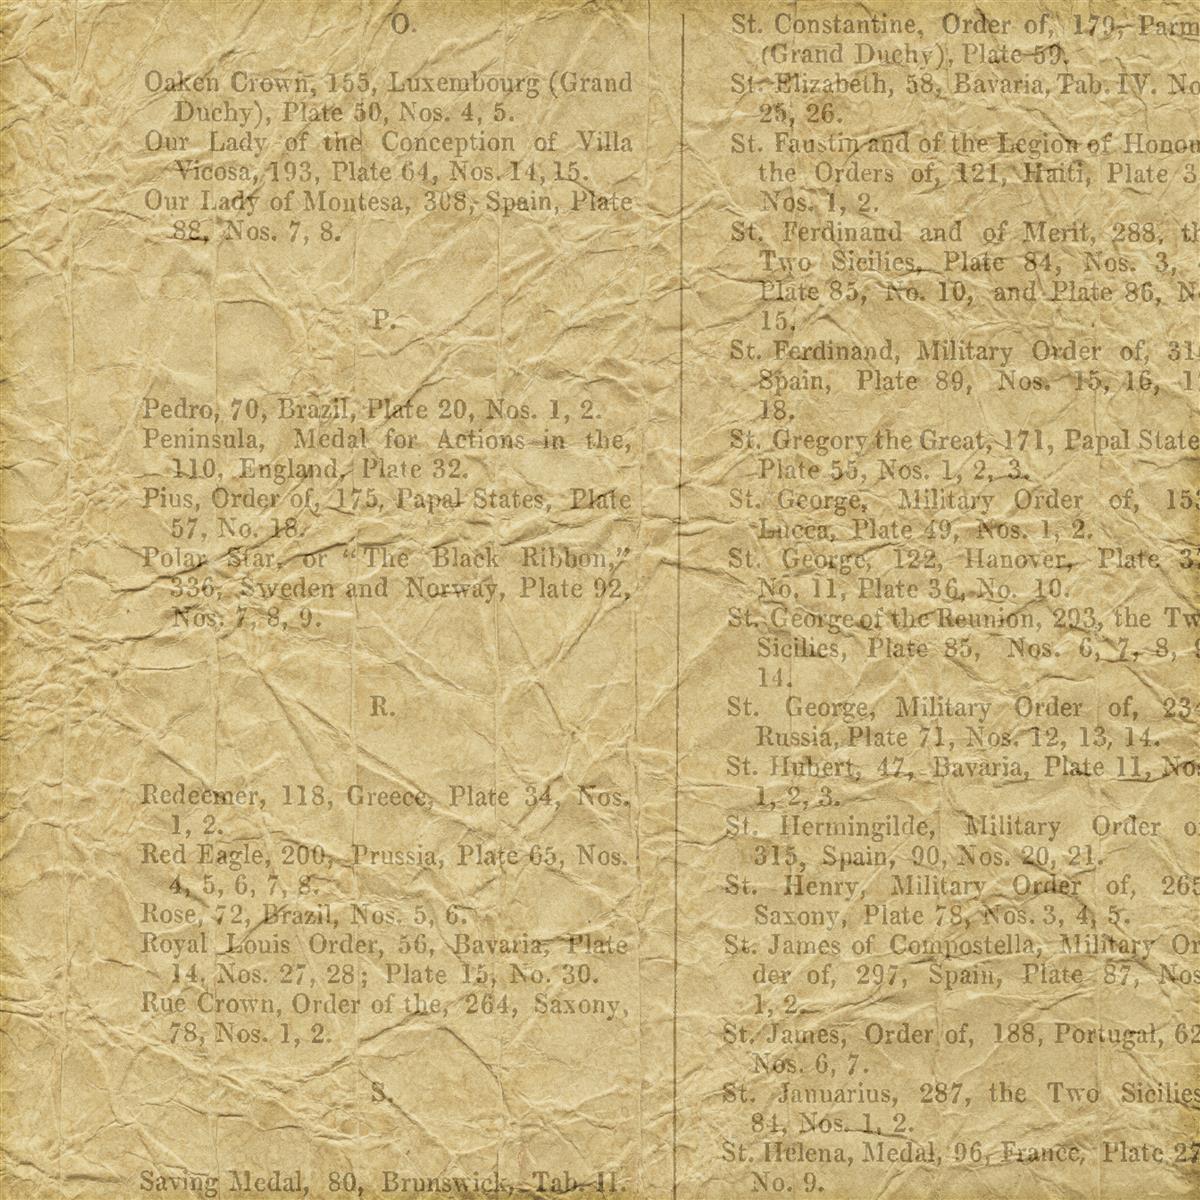 O.
Oaken Crown, 155, Luxembourg (Grand
Duchy), Plate 50, Nos. 4, 5.
Our Lady of the Conception of Villa
Vicosa, 193, Plate 64, Nos. 14, 15.
Our Lady of Montesa, 308, Spain, Plate
88, Nos. 7, 8.
P.
Pedro, 70, Brazil, Plate 20, Nos. 1, 2.
Peninsula, Medal for Actions in the,
110, England, Plate 32.
Pius, Order of, 175, Papal States, Plate
57, No. 18.
Polar Star, or “The Black Ribbon,”
336, Sweden and Norway, Plate 92,
Nos. 7, 8, 9.
R.
Redeemer, 118, Greece, Plate 34, Nos.
1, 2.
Red Eagle, 200, Prussia, Plate 65, Nos.
4, 5, 6, 7, 8.
Rose, 72, Brazil, Nos. 5, 6.
Royal Louis Order, 56, Bavaria, Plate
14, Nos. 27, 28; Plate 15, No. 30.
Rue Crown, Order of the, 264, Saxony,
78, Nos. 1, 2.
S.
Saving Medal, 80, Brunswick, Tab. II.
St. Constantine, Order of, 179, Parm
(Grand Duchy), Plate 59.
St. Elizabeth, 58, Bavaria, Tab. IV. No
25, 26.
St. Faustin and of the Legion of Honou
the Orders of, 121, Haiti, Plate 3
Nos. 1, 2.
St. Ferdinand and of Merit, 288, th
Two Sicilies, Plate 84, Nos. 3,
Plate 85, No. 10, and Plate 86, N
15.
St. Ferdinand, Military Order of, 31
Spain, Plate 89, Nos. 15, 16, 1
18.
St. Gregory the Great, 171, Papal State
Plate 55, Nos. 1, 2, 3.
St. George, Military Order of, 15
Lucca, Plate 49, Nos. 1, 2.
St. George, 122, Hanover, Plate 3
No. 11, Plate 36, No. 10.
St. George of the Reunion, 293, the Tw
Sicilies, Plate 85, Nos. 6, 7, 8, 9
14.
St. George, Military Order of, 234
Russia, Plate 71, Nos. 12, 13, 14.
St. Hubert, 47, Bavaria, Plate 11, Nos
1, 2, 3.
St. Hermingilde, Military Order o
315, Spain, 90, Nos. 20, 21.
St. Henry, Military Order of, 265
Saxony, Plate 78, Nos. 3, 4, 5.
St. James of Compostella, Military Or
der of, 297, Spain, Plate 87, Nos
1, 2.
St. James, Order of, 188, Portugal, 62
Nos. 6, 7.
St. Januarius, 287, the Two Sicilies
84, Nos. 1, 2.
St. Helena, Medal, 96, France, Plate 27
No. 9.